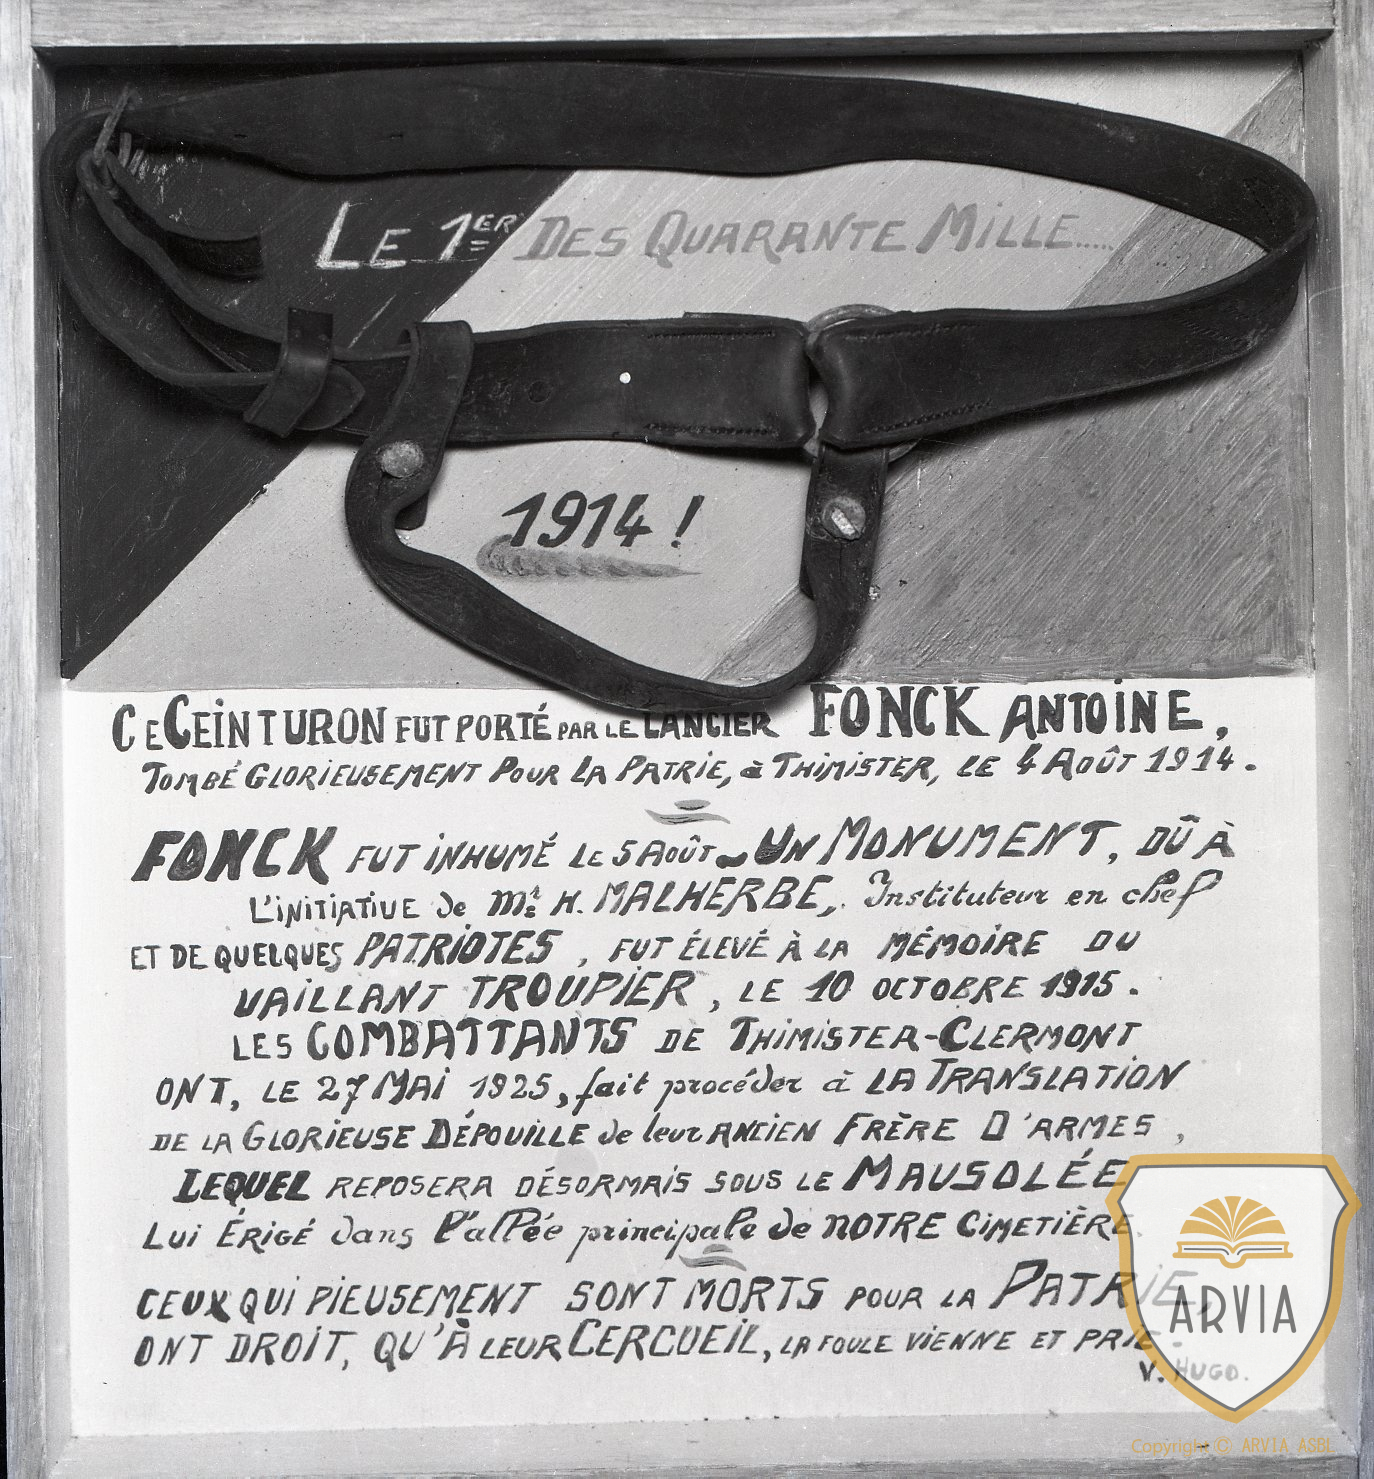 LE 1ER DES QUARANTE MILLE.....
1914 !
CE CEINTURON FUT PORTÉ PAR LE LANCIER FONCK ANTOINE,
TOMBÉ GLORIEUSEMENT POUR LA PATRIE, à THIMISTER, LE 4 AOÛT 1914.
FONCK FUT INHUMÉ LE 5 AOÛT ~ UN MONUMENT, DÛ À
L'INITIATIVE de Mr. H. MALHERBE, Instituteur en chef
ET DE QUELQUES PATRIOTES, FUT ÉLEVÉ À LA MÉMOIRE DU
VAILLANT TROUPIER, LE 10 OCTOBRE 1915.
LES COMBATTANTS DE THIMISTER-CLERMONT
ONT, LE 27 MAI 1925, fait procéder à LA TRANSLATION
DE LA GLORIEUSE DÉPOUILLE de leur ANCIEN FRÈRE D'ARMES,
LEQUEL REPOSERA DÉSORMAIS SOUS LE MAUSOLÉE
LUI ÉRIGÉ dans l'allée principale de NOTRE CIMETIÈRE.
CEUX QUI PIEUSEMENT SONT MORTS POUR LA PATRIE,
ONT DROIT, QU'À LEUR CERCUEIL, LA FOULE VIENNE ET PRIE.
V. HUGO.
ARVIA
Copyright © ARVIA ASBL